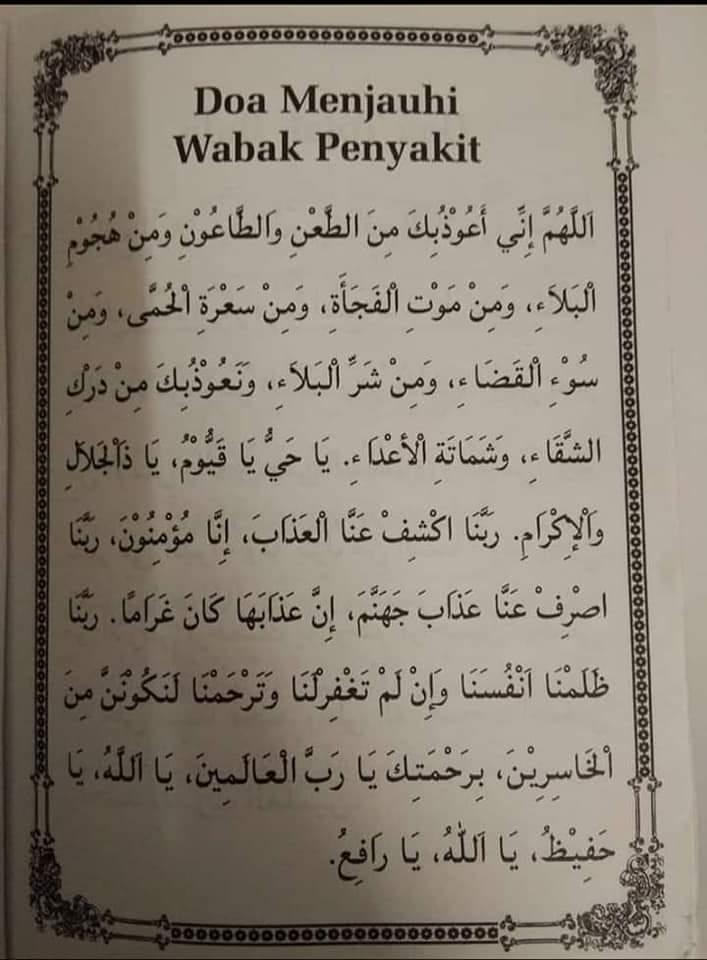 Doa Menjauhi
Wabak Penyakit
اَللَّهُمَّ إِنِّي أَعُوْذُبِكَ مِنَ الطَّعْنِ وَالطَّاعُوْنِ وَمِنْ هُجُوْمِ
الْبَلاَءِ، وَمِنْ مَوْتِ الْفَجَأَةِ، وَمِنْ سَعْرَةِ الْحُمَّى، وَمِنْ
سُوْءِ الْقَضَاءِ، وَمِنْ شَرِّ الْبَلاَءِ، وَنَعُوْذُبِكَ مِنْ دَرْكِ
الشَّقَاءِ، وَشَمَاتَةِ الْأَعْدَاءِ. يَا حَيُّ يَا قَيُّوْمُ، يَا ذَالْجَلاَلِ
وَالْإِكْرَامِ. رَبَّنَا اكْشِفْ عَنَّا الْعَذَابَ، إِنَّا مُؤْمِنُوْنَ، رَبَّنَا
اصْرِفْ عَنَّا عَذَابَ جَهَنَّمَ، إِنَّ عَذَابَهَا كَانَ غَرَامًا. رَبَّنَا
ظَلَمْنَا اَنْفُسَنَا وَإِنْ لَمْ تَغْفِرْلَنَا وَتَرْحَمْنَا لَنَكُوْنَنَّ مِنَ
الْخَاسِرِيْنَ، بِرَحْمَتِكَ يَا رَبَّ الْعَالَمِينَ، يَا اَللَّهُ، يَا
حَفِيْظُ، يَا اَللهُ، يَا رَافِعُ.